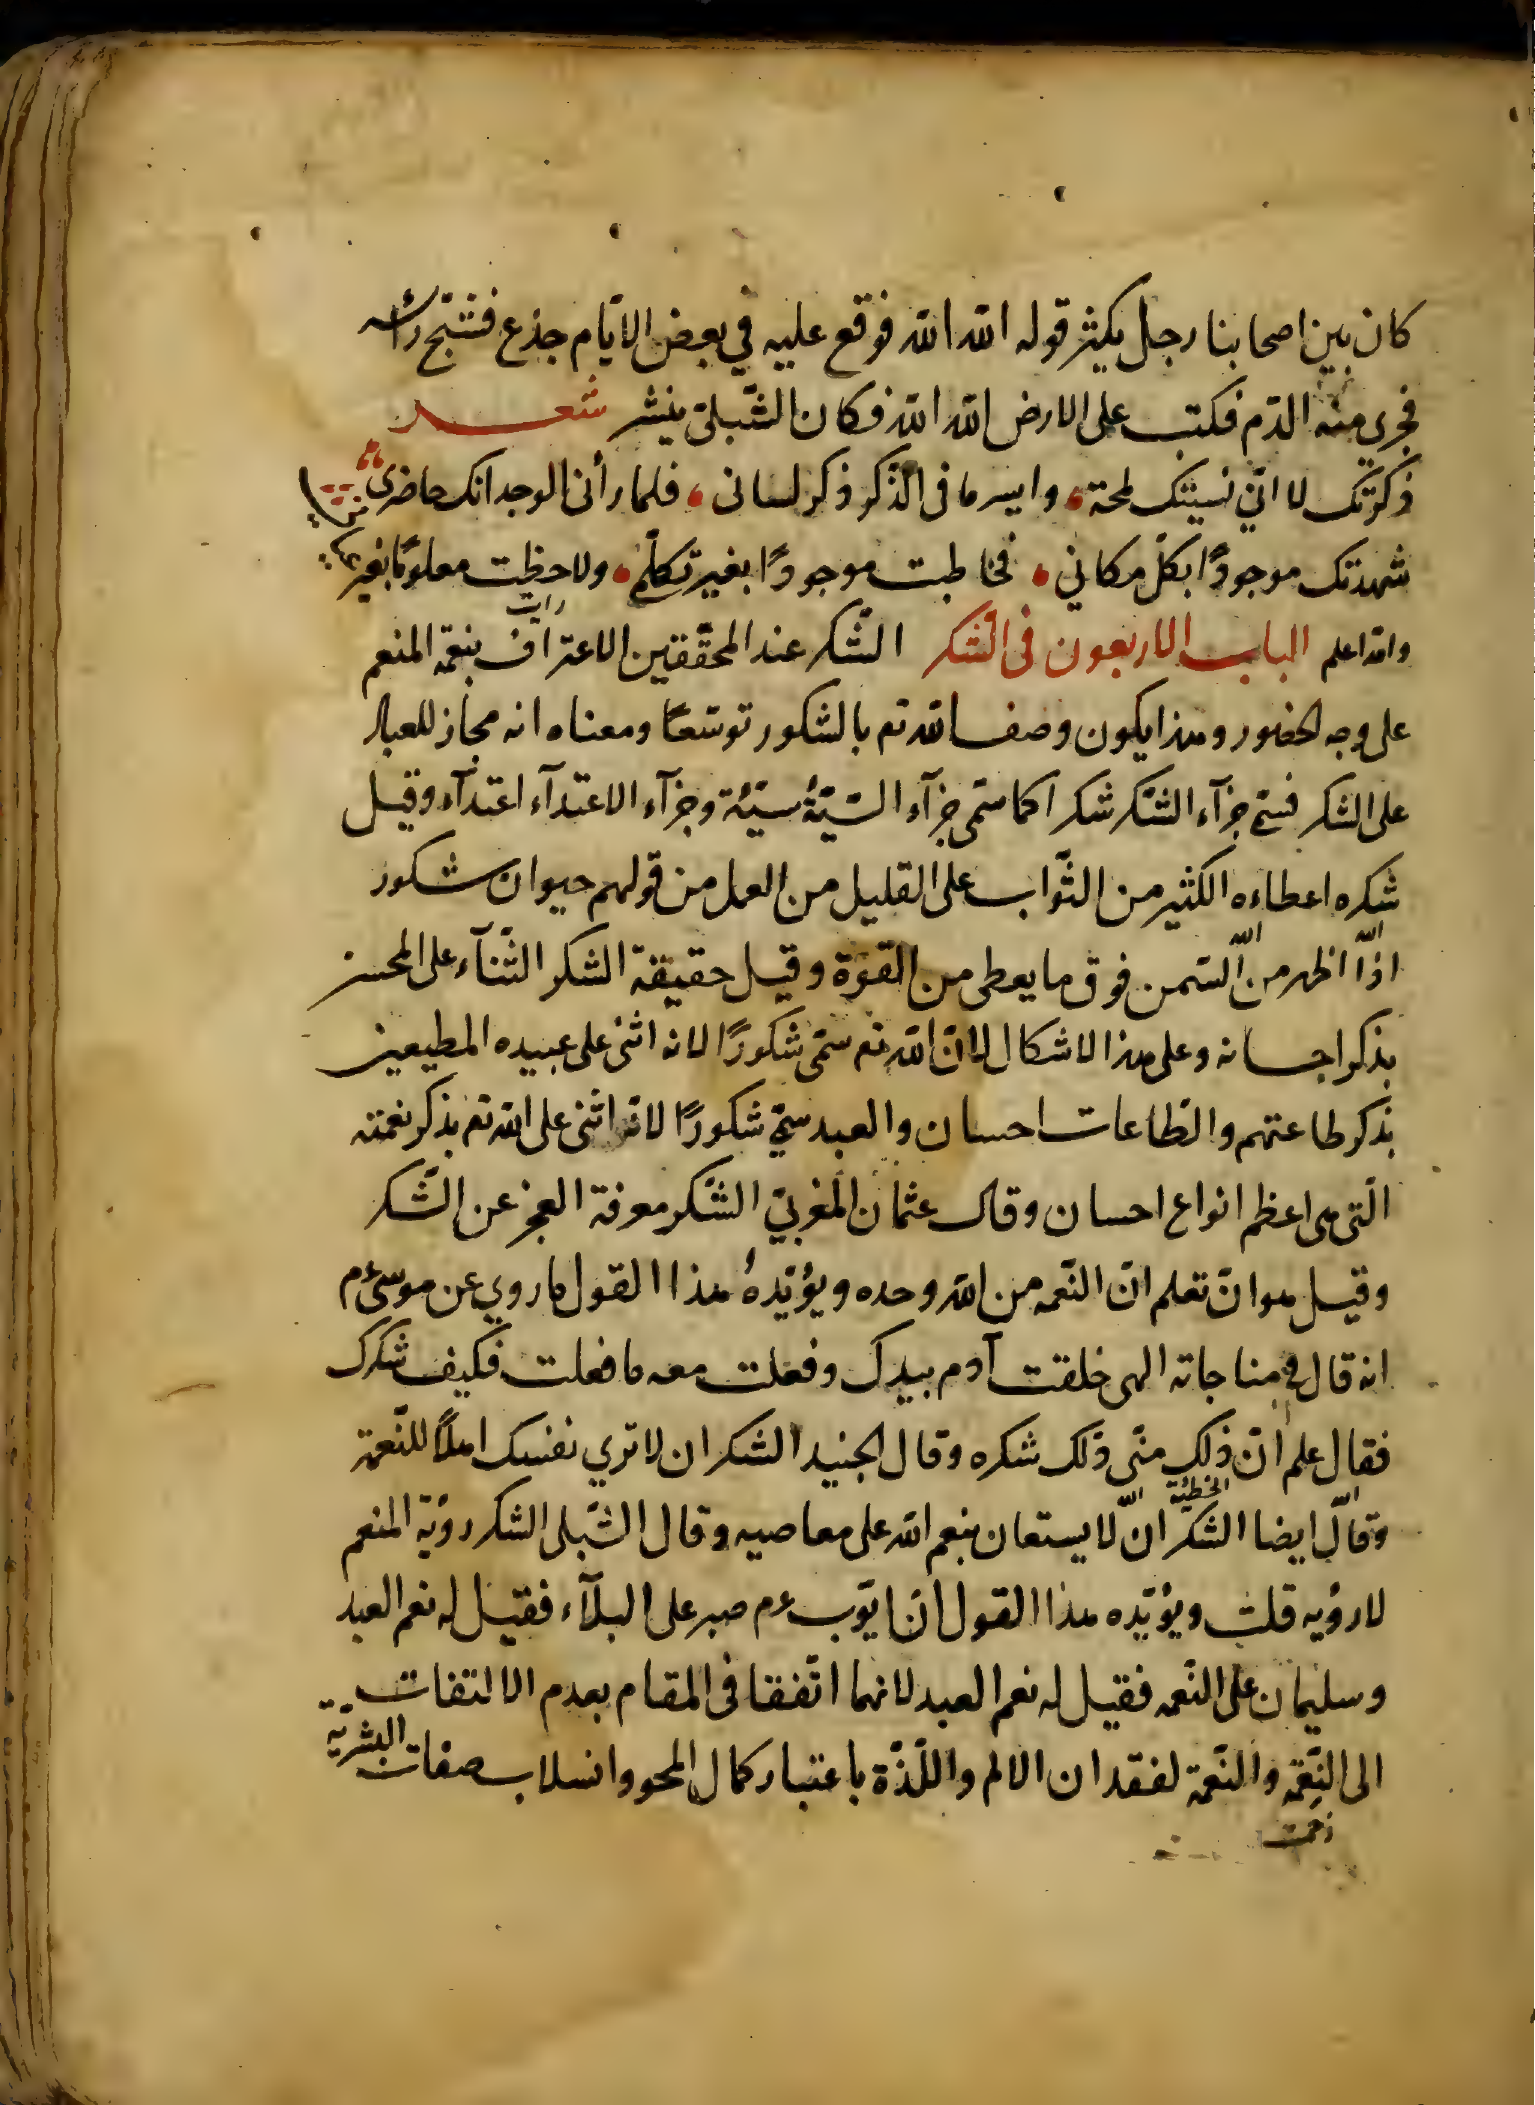 كان بين اصحابنا رجل يكثر قوله الله الله فوقع عليه في بعض الايّام جذع فشبّج رأسه
فجري منه الدّم فكتب على الارض الله الله فكان الشّبليّ ينشر شعر
ذكرتك لا انّي نسيتك لمحة وايسر ما فى الذّكر ذكر لسانى فلما رأنى الوجد انك حاضرى
شهدتك موجودًا بكلّ مكاني فخاطبت موجودًا بغير تكلّم ولاحظت معلومًا بغير
والله اعلم الباب الاربعون فى الشّكر الشّكر عند المحقّقين الاعتراف بنعمة المنعم
على وجه الخضور وبهذا يكون وصف الله تع بالشكور توسّعًا ومعناه انه مجاز للعباد
على الشكر فسمّى جزآء الشّكر شكرا كما سمّى جزآء السّيّئة سيّئة وجزآء الاعتدآء اعتدآء وقيل
شكره اعطاءه الكثير من الثّواب على القليل من العمل من قولهم حيوان شكور
اذا اظهر من السّمن فوق ما يعطى من القوّة وقيل حقيقة الشكر الثّنآء على المحسن
بذكر احسانه وعلى هذا لاشكال لانّ الله تع سمّى شكورًا لانه اثنى على عبيده المطيعين
بذكر طاعتهم والطّاعات احسان والعبد سمّي شكورًا لانه اثنى على الله تع بذكر نعمته
الّتى هى اعظم انواع احسان وقال عثمان المغربيّ الشّكر معرفة العجز عن الشّكر
وقيل هو انّ تعلم انّ النّعمه من الله وحده ويؤيّدهُ هذا القول ما روي عن موسى عم
انه قال فى مناجاته الهى خلقت آدم بيدك وفعلت معه ما فعلت فكيف شكرك
فقال علم انّ ذلك منّى ذلك شكره وقال الجنيد الشكر ان لا تري نفسك اهلًا للنّعمة
وقال ايضا الشكر ان لا يستعان بنعم الله على معاصيه وقال الشّبلى الشكر رؤية المنعم
لا رؤيه قلت ويؤيّده هذا القول انّ ايّوب عم صبر على البلآء فقيل له نعم العبد
وسليمان على النّعمه فقيل له نعم العبد لانهما اتّفقا فى المقام بعدم الالتفات
الى النّقمة والنّعمة لفقدان الالم واللّذّة باعتبار كمال المحو وانسلاب صفات البشريّة
زحمت